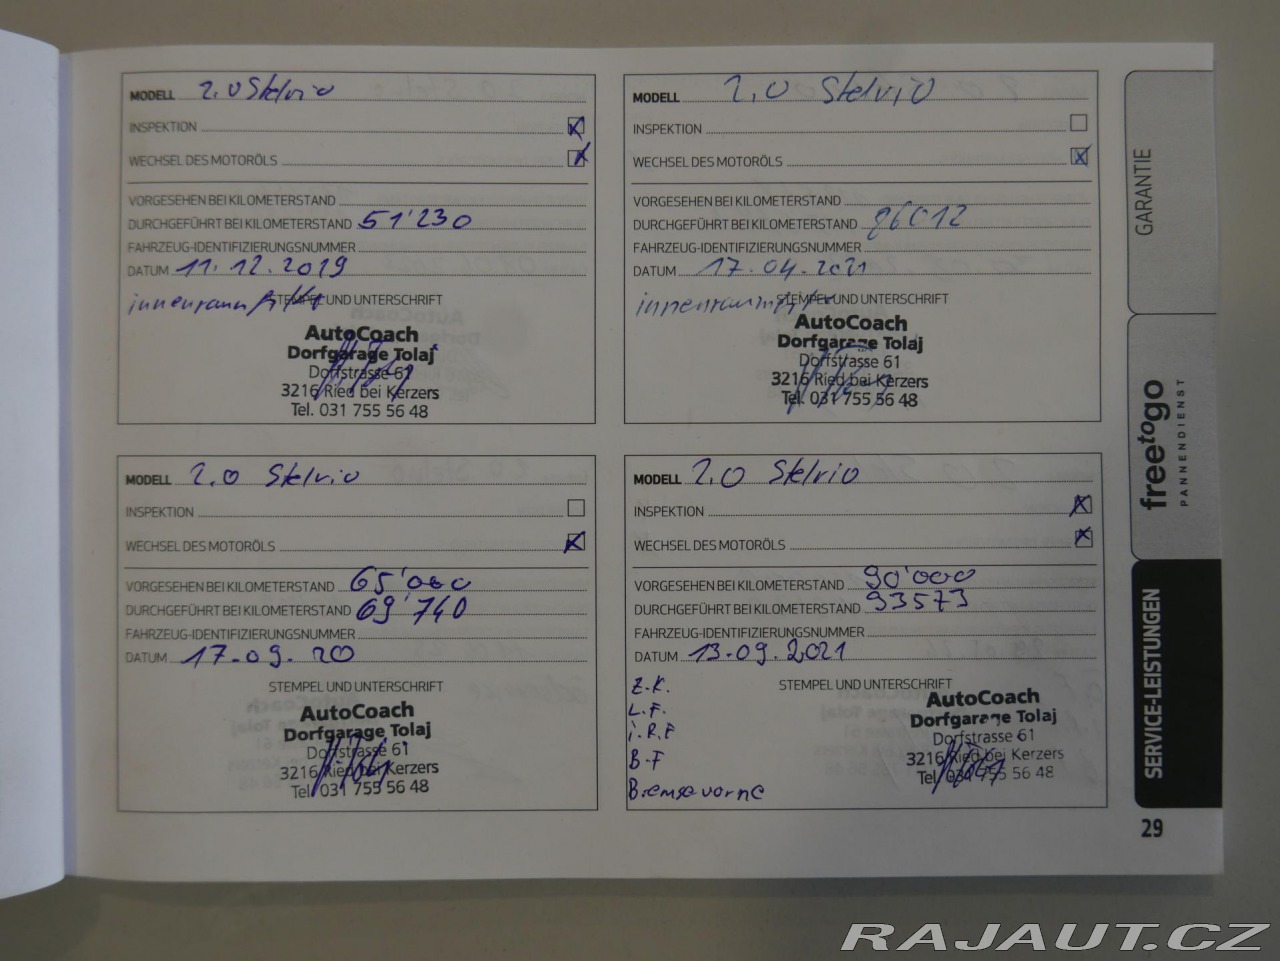 MODELL 2.0 Stelvio
INSPEKTION
WECHSEL DES MOTORÖLS
VORGESEHEN BEI KILOMETERSTAND
DURCHGEFÜHRT BEI KILOMETERSTAND 51'230
FAHRZEUG-IDENTIFIZIERUNGSNUMMER
DATUM 11.12.2019
STEMPEL UND UNTERSCHRIFT
innenraumfilter
AutoCoach
Dorfgarage Tolaj
Dorfstrasse 61
3216 Ried bei Kerzers
Tel. 031 755 56 48
MODELL 2.0 Stelvio
INSPEKTION
WECHSEL DES MOTORÖLS
VORGESEHEN BEI KILOMETERSTAND
DURCHGEFÜHRT BEI KILOMETERSTAND 86012
FAHRZEUG-IDENTIFIZIERUNGSNUMMER
DATUM 17.04.2021
STEMPEL UND UNTERSCHRIFT
innenraumfilter
AutoCoach
Dorfgarage Tolaj
Dorfstrasse 61
3216 Ried bei Kerzers
Tel. 031 755 56 48
MODELL 2.0 Stelvio
INSPEKTION
WECHSEL DES MOTORÖLS
VORGESEHEN BEI KILOMETERSTAND 65'000
DURCHGEFÜHRT BEI KILOMETERSTAND 69'740
FAHRZEUG-IDENTIFIZIERUNGSNUMMER
DATUM 17.09.20
STEMPEL UND UNTERSCHRIFT
AutoCoach
Dorfgarage Tolaj
Dorfstrasse 61
3216 Ried bei Kerzers
Tel. 031 755 56 48
MODELL 2.0 Stelvio
INSPEKTION
WECHSEL DES MOTORÖLS
VORGESEHEN BEI KILOMETERSTAND 90'000
DURCHGEFÜHRT BEI KILOMETERSTAND 93573
FAHRZEUG-IDENTIFIZIERUNGSNUMMER
DATUM 13.09.2021
STEMPEL UND UNTERSCHRIFT
Z.K.
L.F.
i.R.F
B.F
Bremse vorne
AutoCoach
Dorfgarage Tolaj
Dorfstrasse 61
3216 Ried bei Kerzers
Tel. 031 755 56 48
GARANTIE
freetogo
PANNENDIENST
SERVICE-LEISTUNGEN
29
RAJAUT.CZ